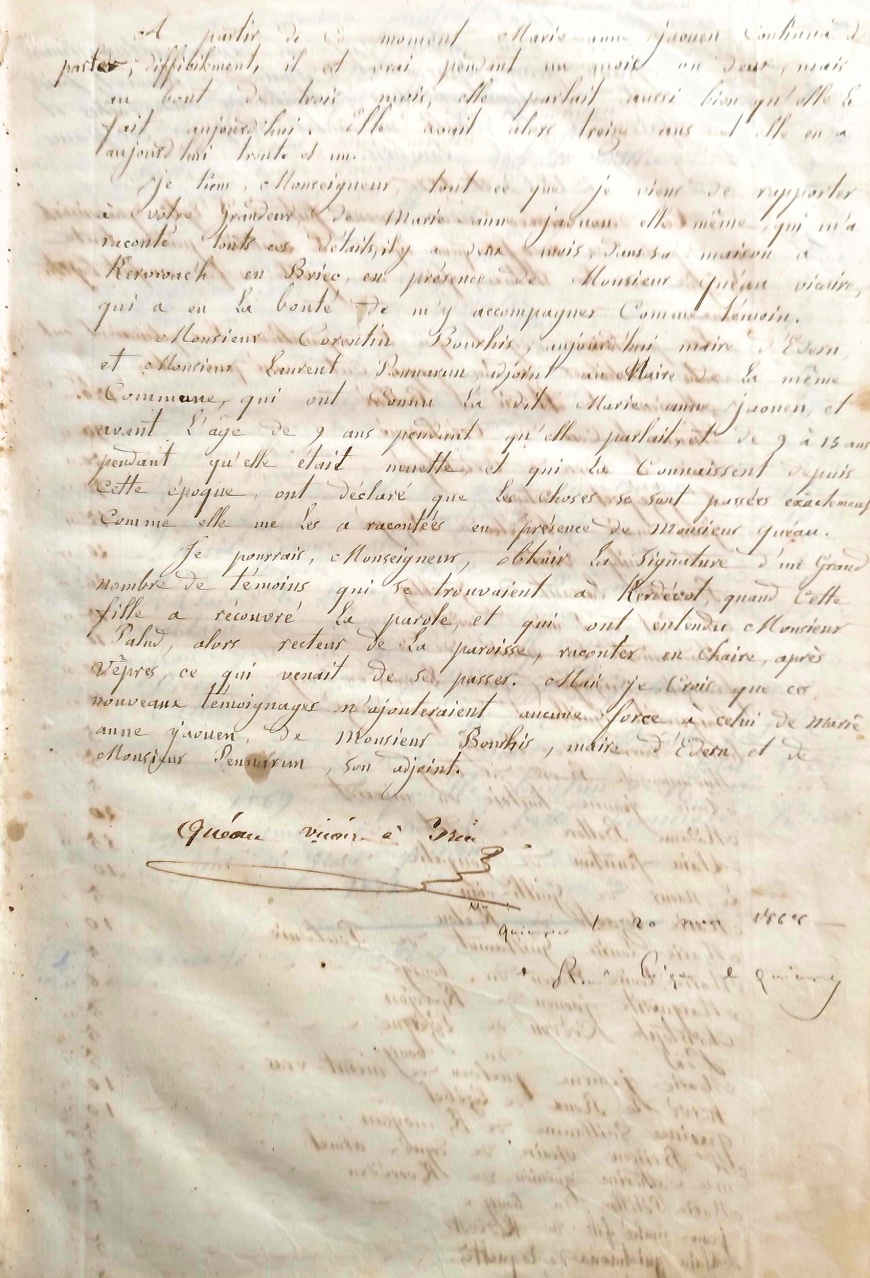 A partir de ce moment Marie anne jaouen Continua à
parler; diffibilment, il est vrai pendant un mois ou deux, mais
au bout de trois mois, elle parlait aussi bien qu'elle le
fait aujourd'hui. Elle avait alors treize ans et elle en a
aujourd'hui trente et un.
Je tiens, Monseigneur, tout ce que je viens de rapporter
à votre Grandeur, de Marie anne jaouen elle même, qui m'a
raconté touts ces détails, il y a deux mois, dans sa maison à
Kervroach en Briec, en présence de Monsieur quéau vicaire,
qui a eu La bonté de m'y accompagner Comme témoin.
Monsieur Corentin Bourhis, aujourd'hui maire d'Edern,
et Monsieur Laurent Pennarun adjoint au Maire de La même
Commune, qui ont Connu La dite Marie anne jaouen, et
avant L'âge de 9 ans pendant qu'elle parlait, et de 9 à 13 ans
pendant qu'elle était muette, et qui La Connaissent depuis
Cette époque, ont déclaré que Les choses se sont passées exactement
Comme elle me Les a racontées en présence de Monsieur quéau.
Je pourrais, Monseigneur, obtenir La Signature d'un Grand
nombre de témoins qui se trouvaient à Kerdévot, quand Cette
fille a récouvré La parole, et qui ont entendu Monsieur
Palud, alors recteur de La paroisse, raconter en Chaire, après
Vêpres, ce qui venait de se passer. Mais je Crois que ces
nouveaux témoignages n'ajouteraient aucune force à celui de Marie
anne jaouen, de Monsieur Bourhis, maire d'Edern et de
Monsieur Pennarun, son adjoint.
Quéau vicaire à Briec
quimper 20